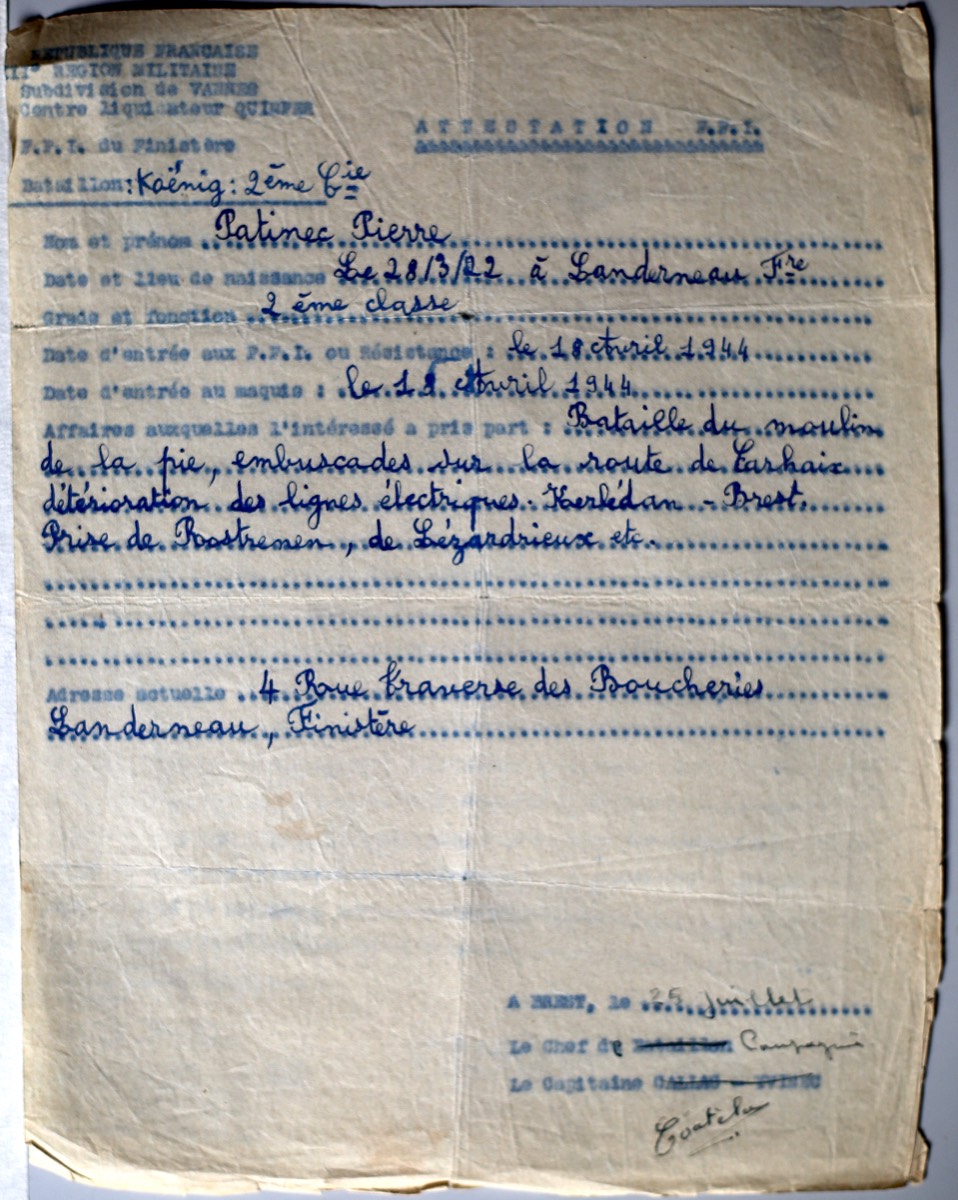 REPUBLIQUE FRANCAISE
II° REGION MILITAIRE
Subdivision de VANNES
Centre liquidateur QUIMPER
F.F.I. du Finistère
ATTESTATION F.F.I.
Bataillon: Koënig: 2ème Cie
Nom et prénom Patinec Pierre
Date et lieu de naissance Le 28/3/22 à Landerneau Fre
Grade et fonction 2ème classe
Date d'entrée aux F.F.I. ou Résistance : le 18 Avril 1944
Date d'entrée au maquis : le 18 Avril 1944
Affaires auxquelles l'intéressé a pris part : Bataille du moulin
de la pie, embuscades sur la route de Carhaix
détérioration des lignes électriques. Kerlédan - Brest.
Prise de Rostrenen, de Lézardrieux etc.
Adresse actuelle 4 Rue traverse des Boucheries
Landerneau, Finistère
A BREST, le 25 juillet
Le Chef de Bataillon Compagnie
Le Capitaine